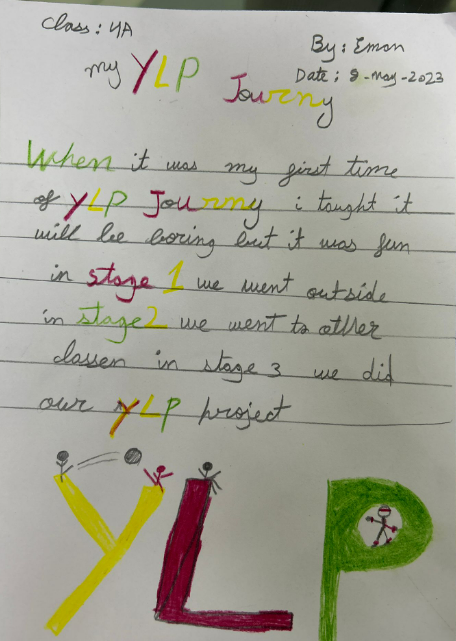 Class: 4A
By: Eman
my YLP Journy
Date: 8-may-2023
When it was my first time
of YLP Journy i tought it
will be boring but it was fun
in stage 1 we went outside
in stage 2 we went to other
classen in stage 3 we did
our YLP project
YLP